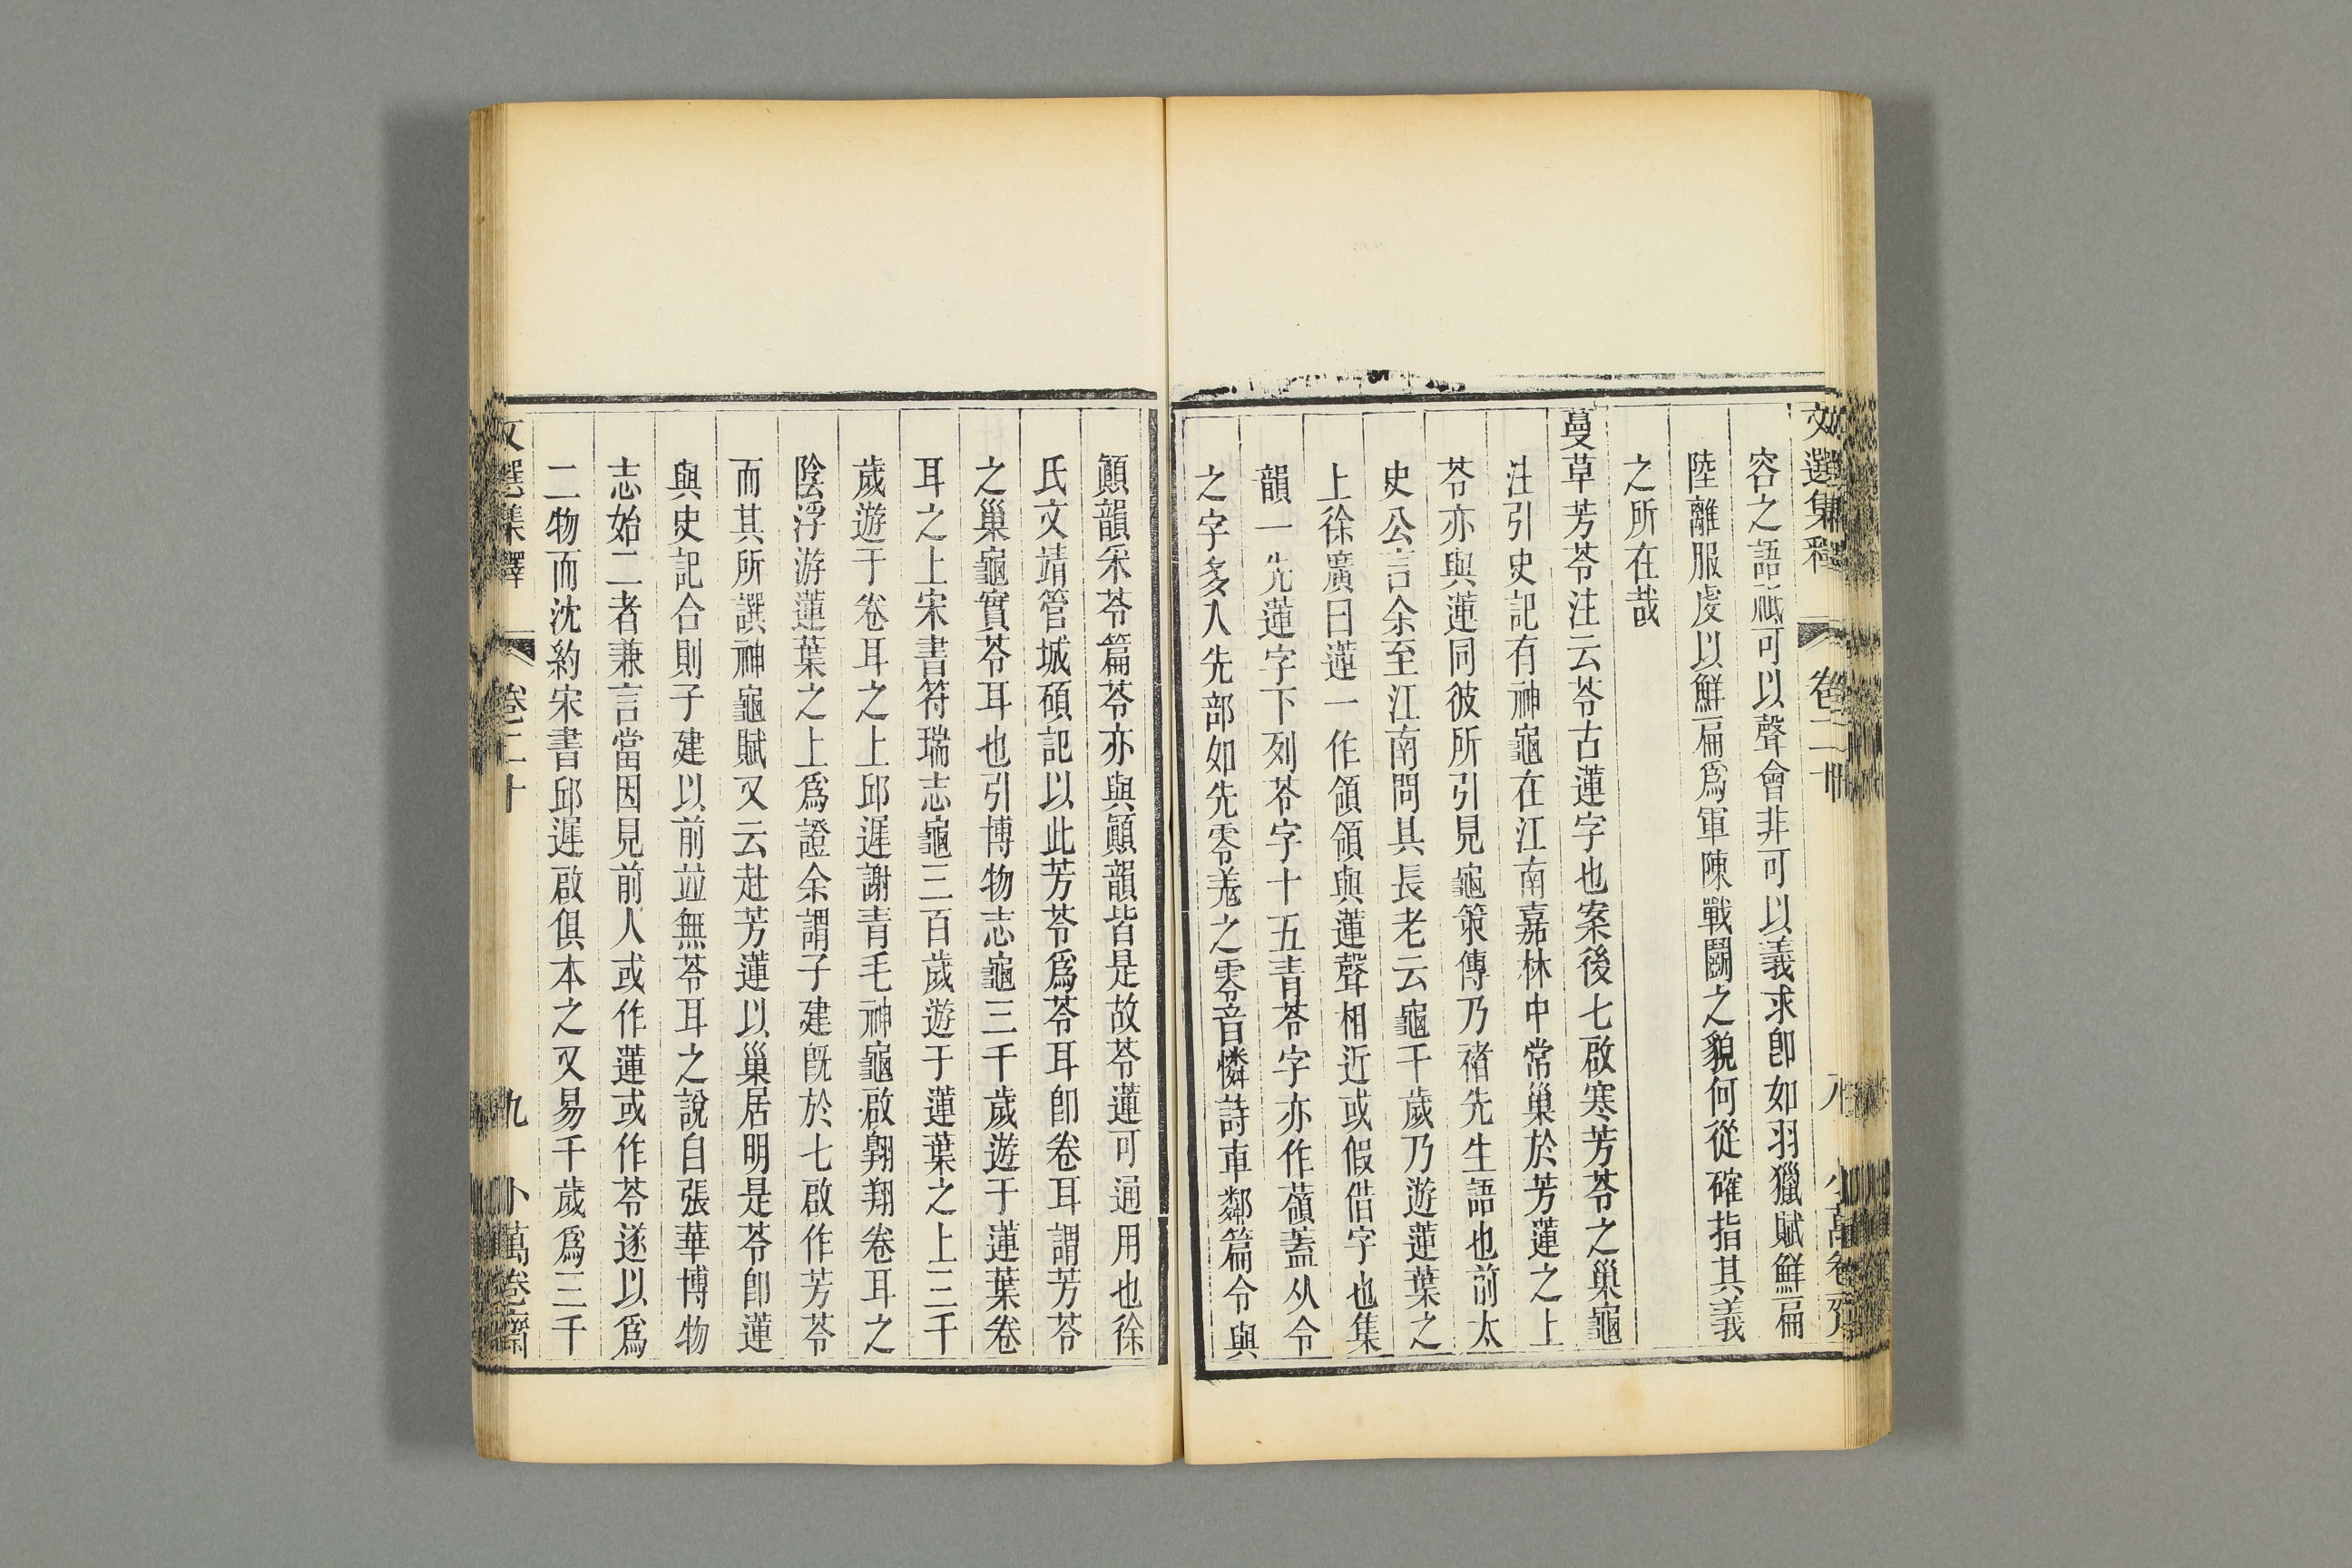 文選集釋 卷二十 八 小萬卷齋
容之語祗可以聲會非可以義求卽如羽獵賦鮮扁
陸離服虔以鮮扁爲軍陳戰鬭之貌何從確指其義
之所在哉
蔓草芳苓注云苓古蓮字也案後七啟寒芳苓之巢龜
注引史記有神龜在江南嘉林中常巢於芳蓮之上
苓亦與蓮同彼所引見龜策傳乃褚先生語也前太
史公言余至江南問其長老云龜千歲乃遊蓮葉之
上徐廣曰蓮一作領領與蓮聲相近或假借字也集
韻一先蓮字下列苓字十五青苓字亦作蘦蓋从令
之字多入先部如先零羗之零音憐詩車鄰篇令與
顚韻采苓篇苓亦與顚韻皆是故苓蓮可通用也徐
氏文靖管城碩記以此芳苓爲苓耳卽卷耳謂芳苓
之巢龜實苓耳也引博物志龜三千歲遊于蓮葉卷
耳之上宋書符瑞志龜三百歲遊于蓮葉之上三千
歲遊于卷耳之上邱遲謝青毛神龜啟翺翔卷耳之
陰浮游蓮葉之上爲證余謂子建旣於七啟作芳苓
而其所譔神龜賦又云赴芳蓮以巢居明是苓卽蓮
與史記合則子建以前並無苓耳之說自張華博物
志始二者兼言當因見前人或作蓮或作苓遂以爲
二物而沈約宋書邱遲啟俱本之又易千歲爲三千
文選集釋 卷二十 九 小萬卷齋